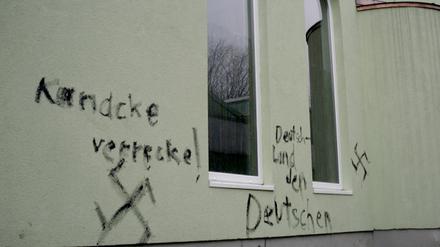 Kandcke
verrecke!
Deutsch-
land
den
Deutschen